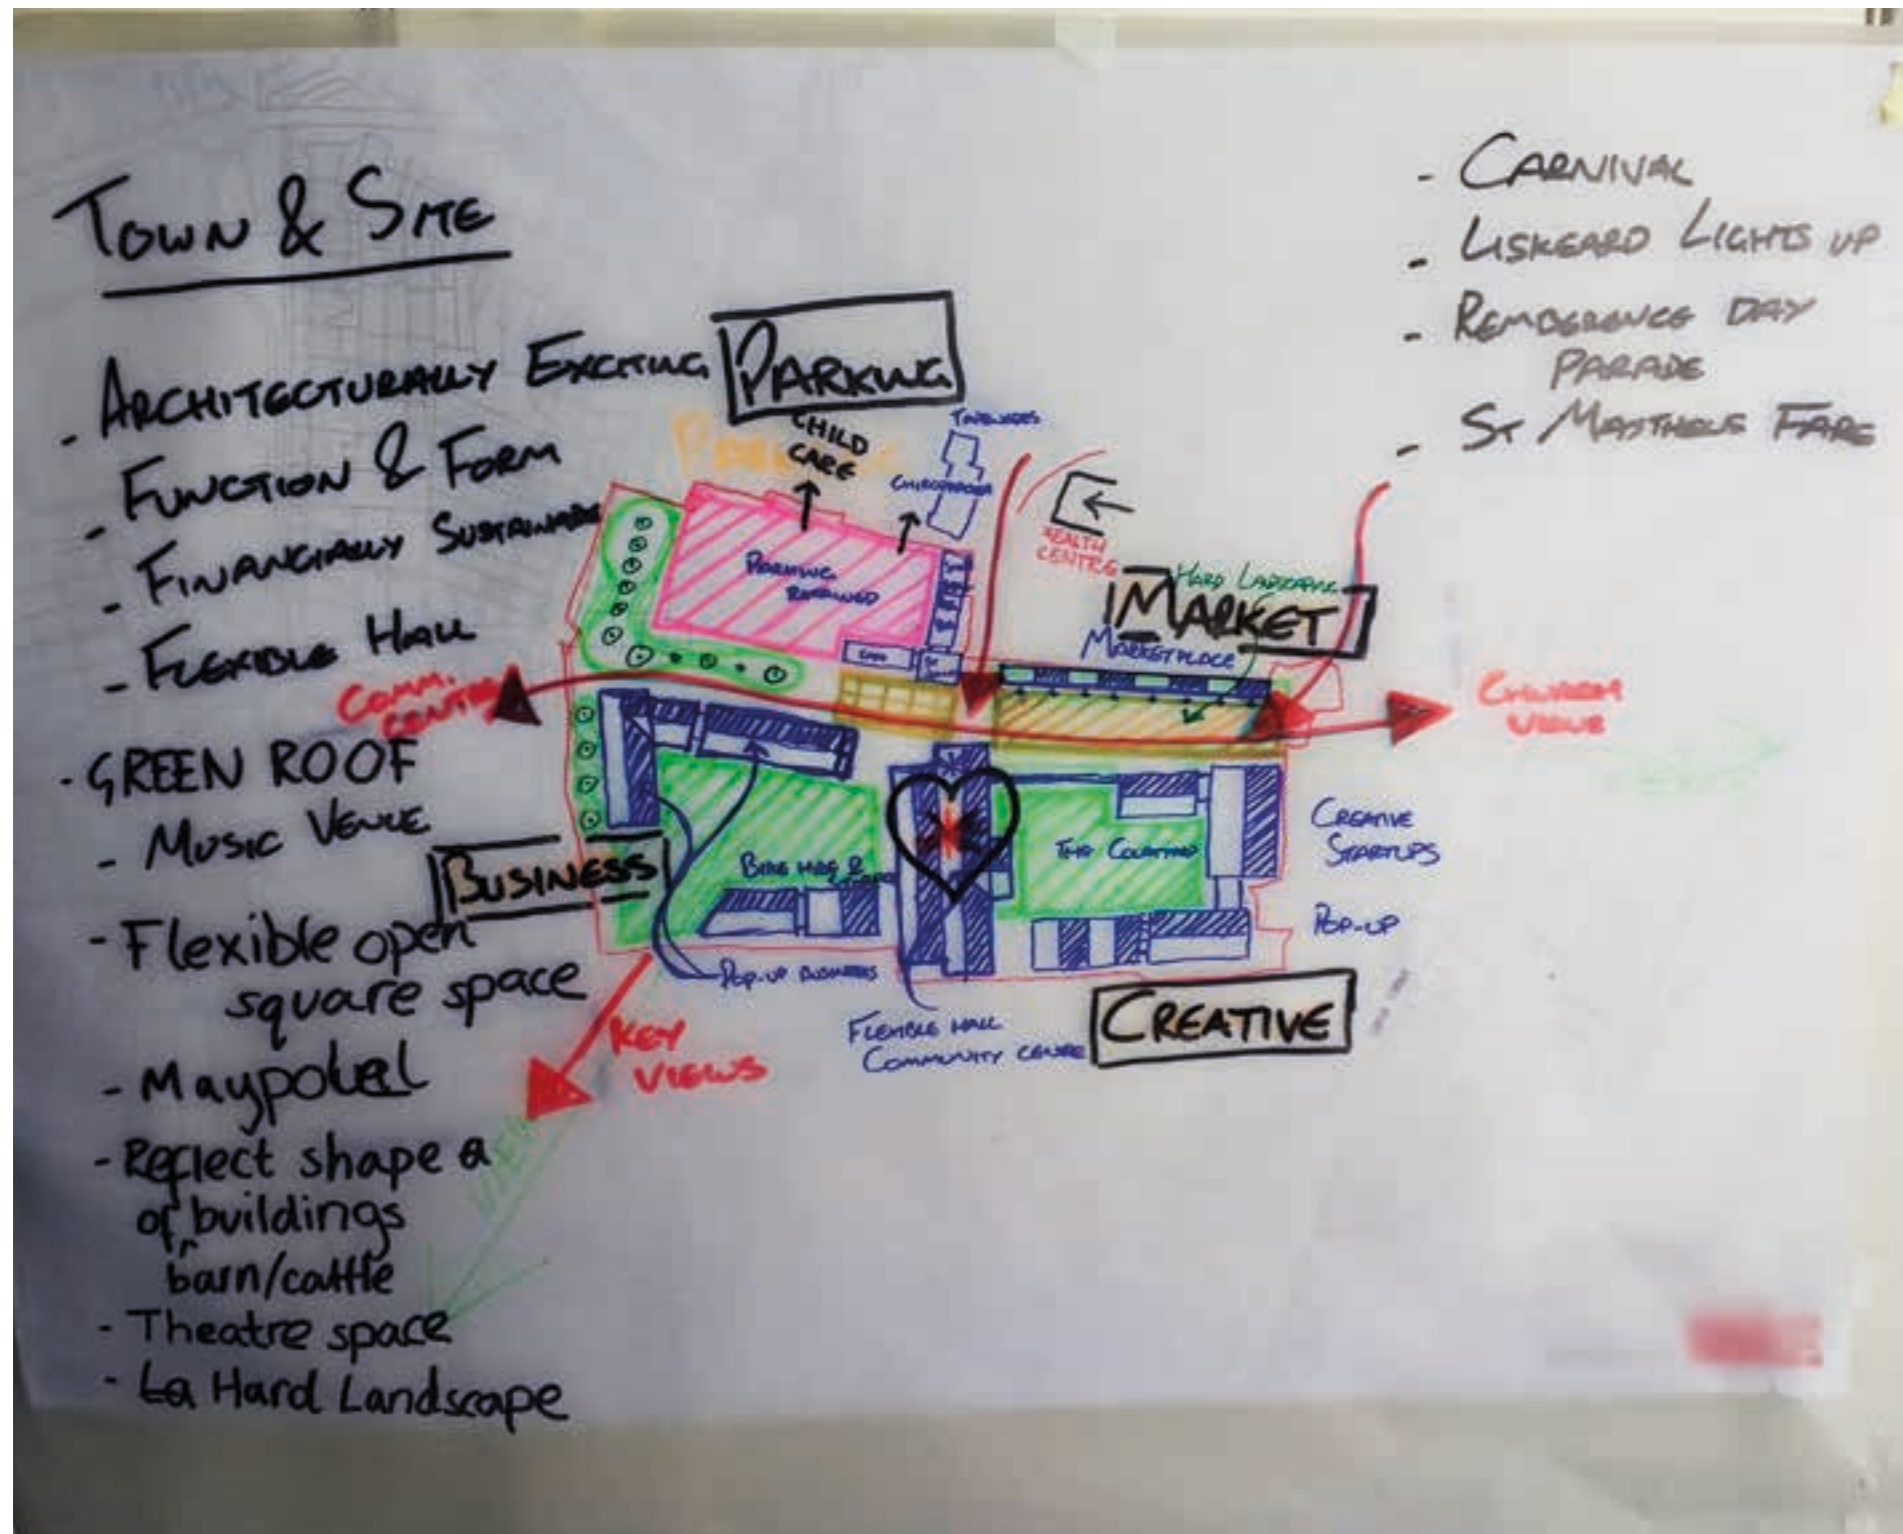 TOWN & SITE
- ARCHITECTURALLY EXCITING
- FUNCTION & FORM
- FINANCIALLY SUSTAINABLE
- FLEXIBLE HALL
- GREEN ROOF
- MUSIC VENUE
- Flexible open
square space
- Maypole
- Reflect shape
of buildings
barn/cattle
- Theatre space
- Hard Landscape
- CARNIVAL
- LISKEARD LIGHTS UP
- REMBERENCE DAY
PARADE
- ST MATTHEWS FARE
PARKING
PARKING
CHILD
CARE
CHIROPRACTOR
PARKING
RETAINED
HEALTH
CENTRE
HARD LANDSCAPING
MARKET
MARKETPLACE
COMM.
CENTRE
CHURCH
VIEW
BUSINESS
BIKE HIRE &
THE COURTYARD
CREATIVE
STARTUPS
POP-UP
POP-UP BUSINESS
FLEXIBLE HALL
COMMUNITY CENTRE
CREATIVE
KEY
VIEWS
VIEW